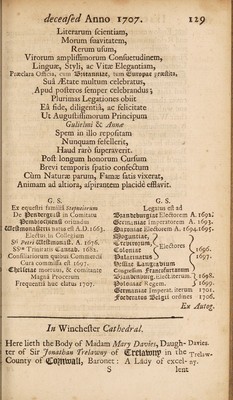 deceased Anno 1707. 129
Literarum scientiam,
Morum suavitatem,
Rerum usum,
Virorum amplissimorum Consuetudinem,
Linguæ, Styli, ac Vitæ Elegantiam,
Præclara Officia, cum Britanniæ, tum Europæ præstita,
Suâ Ætate multum celebratus,
Apud posteros semper celebrandus;
Plurimas Legationes obiit
Eâ fide, diligentiâ, ac felicitate
Ut Augustissimorum Principum
Gulielmi & Annæ
Spem in illo repositam
Nunquam fefellerit,
Haud rarò superaverit.
Post longum honorum Cursum
Brevi temporis spatio confectum
Cùm Naturæ parum, Famæ satis vixerat,
Animam ad altiora aspirantem placidè efflavit.
G. S.
Ex equestri familia Stepneiorum
De Pendergast in Comitatu
Pembrochiensi oriundus
Westmonasterii natus est A.D. 1663.
Electus in Collegium
Sti Petri Westmonast. A. 1676.
SStæ Trinitatis Cantab. 1682.
Consiliariorum quibus Commercii
Cura commissa est 1697.
Chelseiæ mortuus, & comitante
Magnâ Procerum
Frequentiâ huc elatus 1707.
G. S.
Legatus est ad
Brandeburgiæ Electorem A. 1692.
Germaniae Imperatorem A. 1693.
Saxoniae Electorem A. 1694. 1695.
Moguntiae,
Trevirorum,
Coloniae
Palatinatus
Electores
1696.
1697.
Hessiae Langravium
Congressum Francofurtanum
Brandenburg. Electorem 1698.
Poloniae Regem. 1699.
Germaniae Imperat. iterum 1701.
Foederatos Belgii ordines 1706.
Ex Autog.
In Winchester Cathedral.
Here lieth the Body of Madam Mary Davies, Daugh- Davies.
ter of Sir Jonathan Trelawny of Trelawny in the Trelaw-
County of Cornwall, Baronet: A Lady of excel- ny.
S lent